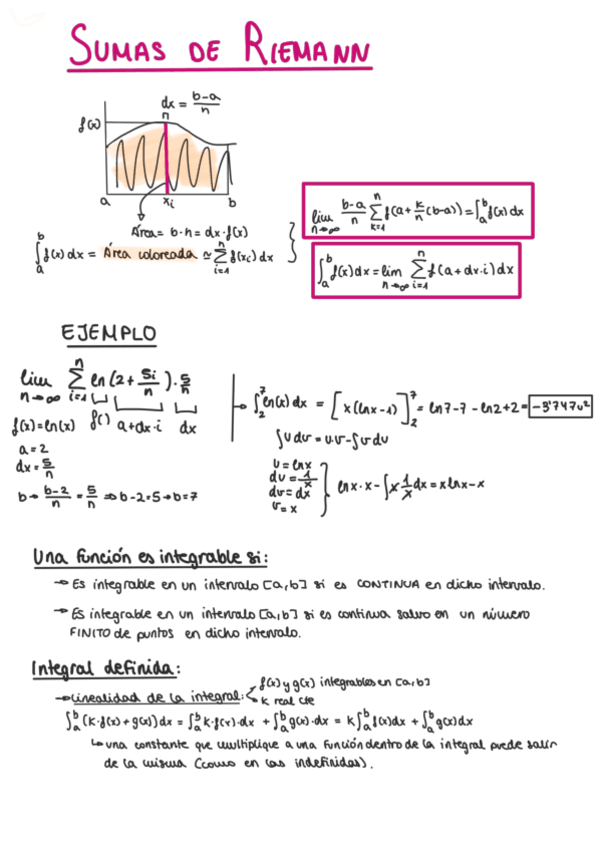 SUMAS DE RIEMANN
dx = b-a/n
f(x)
a xi b
Área = b·h = dx·f(x)
∫ₐᵇ f(x) dx = Área coloreada ≃ Σᵢ₌₁ⁿ f(xi) dx
lim n→∞ b-a/n Σₖ₌₁ⁿ f(a+k/n(b-a)) = ∫ₐᵇ f(x) dx
∫ₐᵇ f(x) dx = lim n→∞ Σᵢ₌₁ⁿ f(a+dx·i) dx
EJEMPLO
lim n→∞ Σᵢ₌₁ⁿ ln(2+5i/n)·5/n
f(x)=ln(x) f( ) a+dx·i dx
a=2
dx=5/n
b→ b-2/n = 5/n ⇒ b-2=5→b=7
→ ∫₂⁷ ln(x) dx = [x(lnx-1)]₂⁷ = ln7-7-ln2+2= -3'747u²
∫u dv = u·v-∫v du
u=lnx
du=1/x
dv=dx
v=x
lnx·x-∫x 1/x dx = x lnx-x
Una función es integrable si:
→ Es integrable en un intervalo [a,b] si es CONTINUA en dicho intervalo.
→ Es integrable en un intervalo [a,b] si es continua salvo en un número
FINITO de puntos en dicho intervalo.
Integral definida:
→ Linealidad de la integral: f(x) y g(x) integrables en [a,b]
K real cte
∫ₐᵇ (K·f(x)+g(x)) dx = ∫ₐᵇ K·f(x)·dx + ∫ₐᵇ g(x)·dx = K∫ₐᵇ f(x)dx + ∫ₐᵇ g(x)dx
↳ una constante que multiplique a una función dentro de la integral puede salir
de la misma (como en las indefinidas).